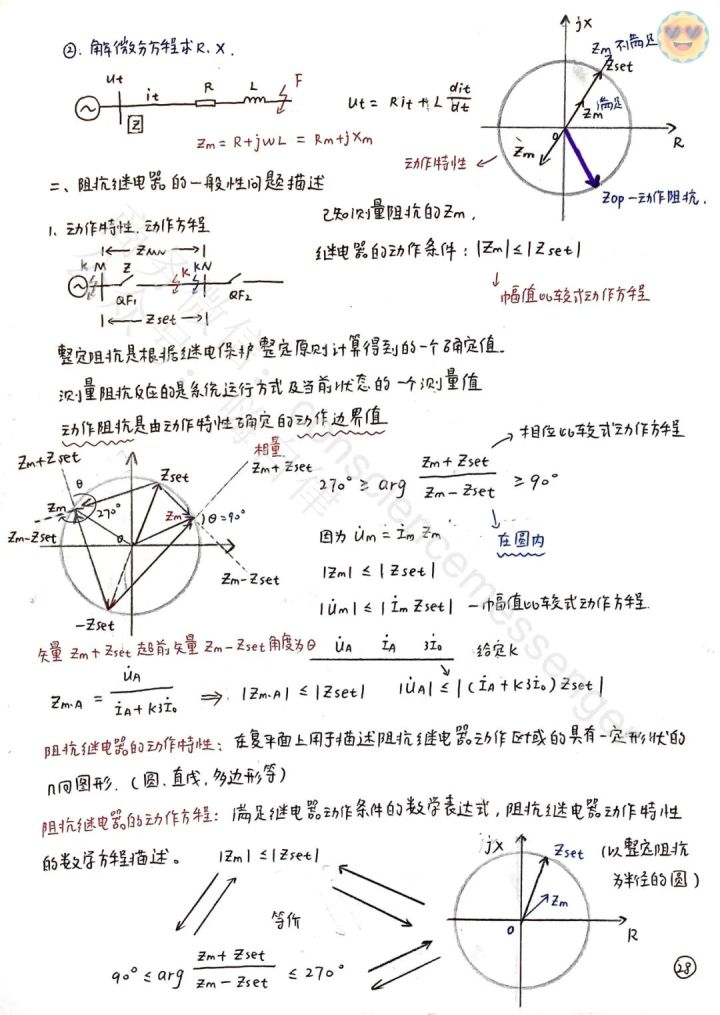 ②. 解微分方程求R、X.
ut it R L F
Z
ut = Rit + L dit/dt
Zm = R+jωL = Rm+jXm
jX
Zm 不满足
Zset
Zm 满足
0 R
Zm
动作特性
Zop—动作阻抗.
二、阻抗继电器的一般性问题描述
1. 动作特性、动作方程
已知测量阻抗的Zm,
继电器的动作条件: |Zm| ≤ |Zset|
幅值比较式动作方程
ZMN
K M Z K K N
QF1 QF2
Zset
整定阻抗是根据继电保护整定原则计算得到的一个确定值.
测量阻抗反应的是系统运行方式及当前状态的一个测量值
动作阻抗是由动作特性确定的动作边界值
相位比较式动作方程
270° ≥ arg (Zm + Zset)/(Zm - Zset) ≥ 90°
在圆内
Zm+Zset 相量
θ Zset Zm + Zset
Zm 270° Zm θ=90°
Zm-Zset 0
Zm-Zset
-Zset
因为 U̇m = İm Zm
|Zm| ≤ |Zset|
|U̇m| ≤ |İm Zset| —幅值比较式动作方程.
矢量 Zm + Zset 超前矢量 Zm - Zset 角度为θ
U̇A İA 3İ0 给定K
Zm.A = U̇A/(İA + K3İ0) ⇒ |Zm.A| ≤ |Zset| |U̇A| ≤ |(İA + K3İ0) Zset|
阻抗继电器的动作特性: 在复平面上用于描述阻抗继电器动作区域的具有一定形状的
几何图形. (圆、直线, 多边形等)
阻抗继电器的动作方程: 满足继电器动作条件的数学表达式, 阻抗继电器动作特性
的数学方程描述。
|Zm| ≤ |Zset|
等价
90° ≤ arg (Zm + Zset)/(Zm - Zset) ≤ 270°
jX
Zset
Zm
0 R
(以整定阻抗
为半径的圆)
28